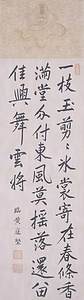 一枝玉剪冰裳寄在春條香
滿堂分付東風莫搖落還留
佳興舞雲將
臨黃庭堅